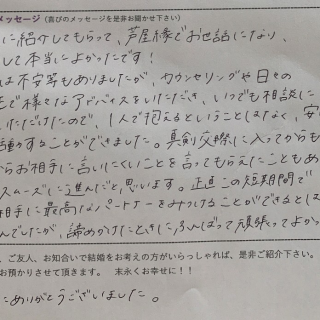 メッセージ（喜びのメッセージを是非お聞かせ下さい）
に紹介してもらって、芦屋縁でお世話になり、
して本当によかったです！
は不安等もありましたが、カウンセリングや日々の
で様々なアドバイスをいただき、いつでも相談に
いただけたので、1人で抱えるということはなく、安
することができました。真剣交際に入ってからも
からお相手に言いにくいことを言ってもらえたこともあ
スムーズに進んだと思います。正直この短期間で
相手に最高なパートナーをみつけることができるとは
んでしたが、諦めかけたときにふんばって頑張ってよかっ
、ご友人、お知合いで結婚をお考えの方がいらっしゃれば、是非ご紹介下さい。
お預かりさせて頂きます。 末永くお幸せに！！
にありがとうございました。